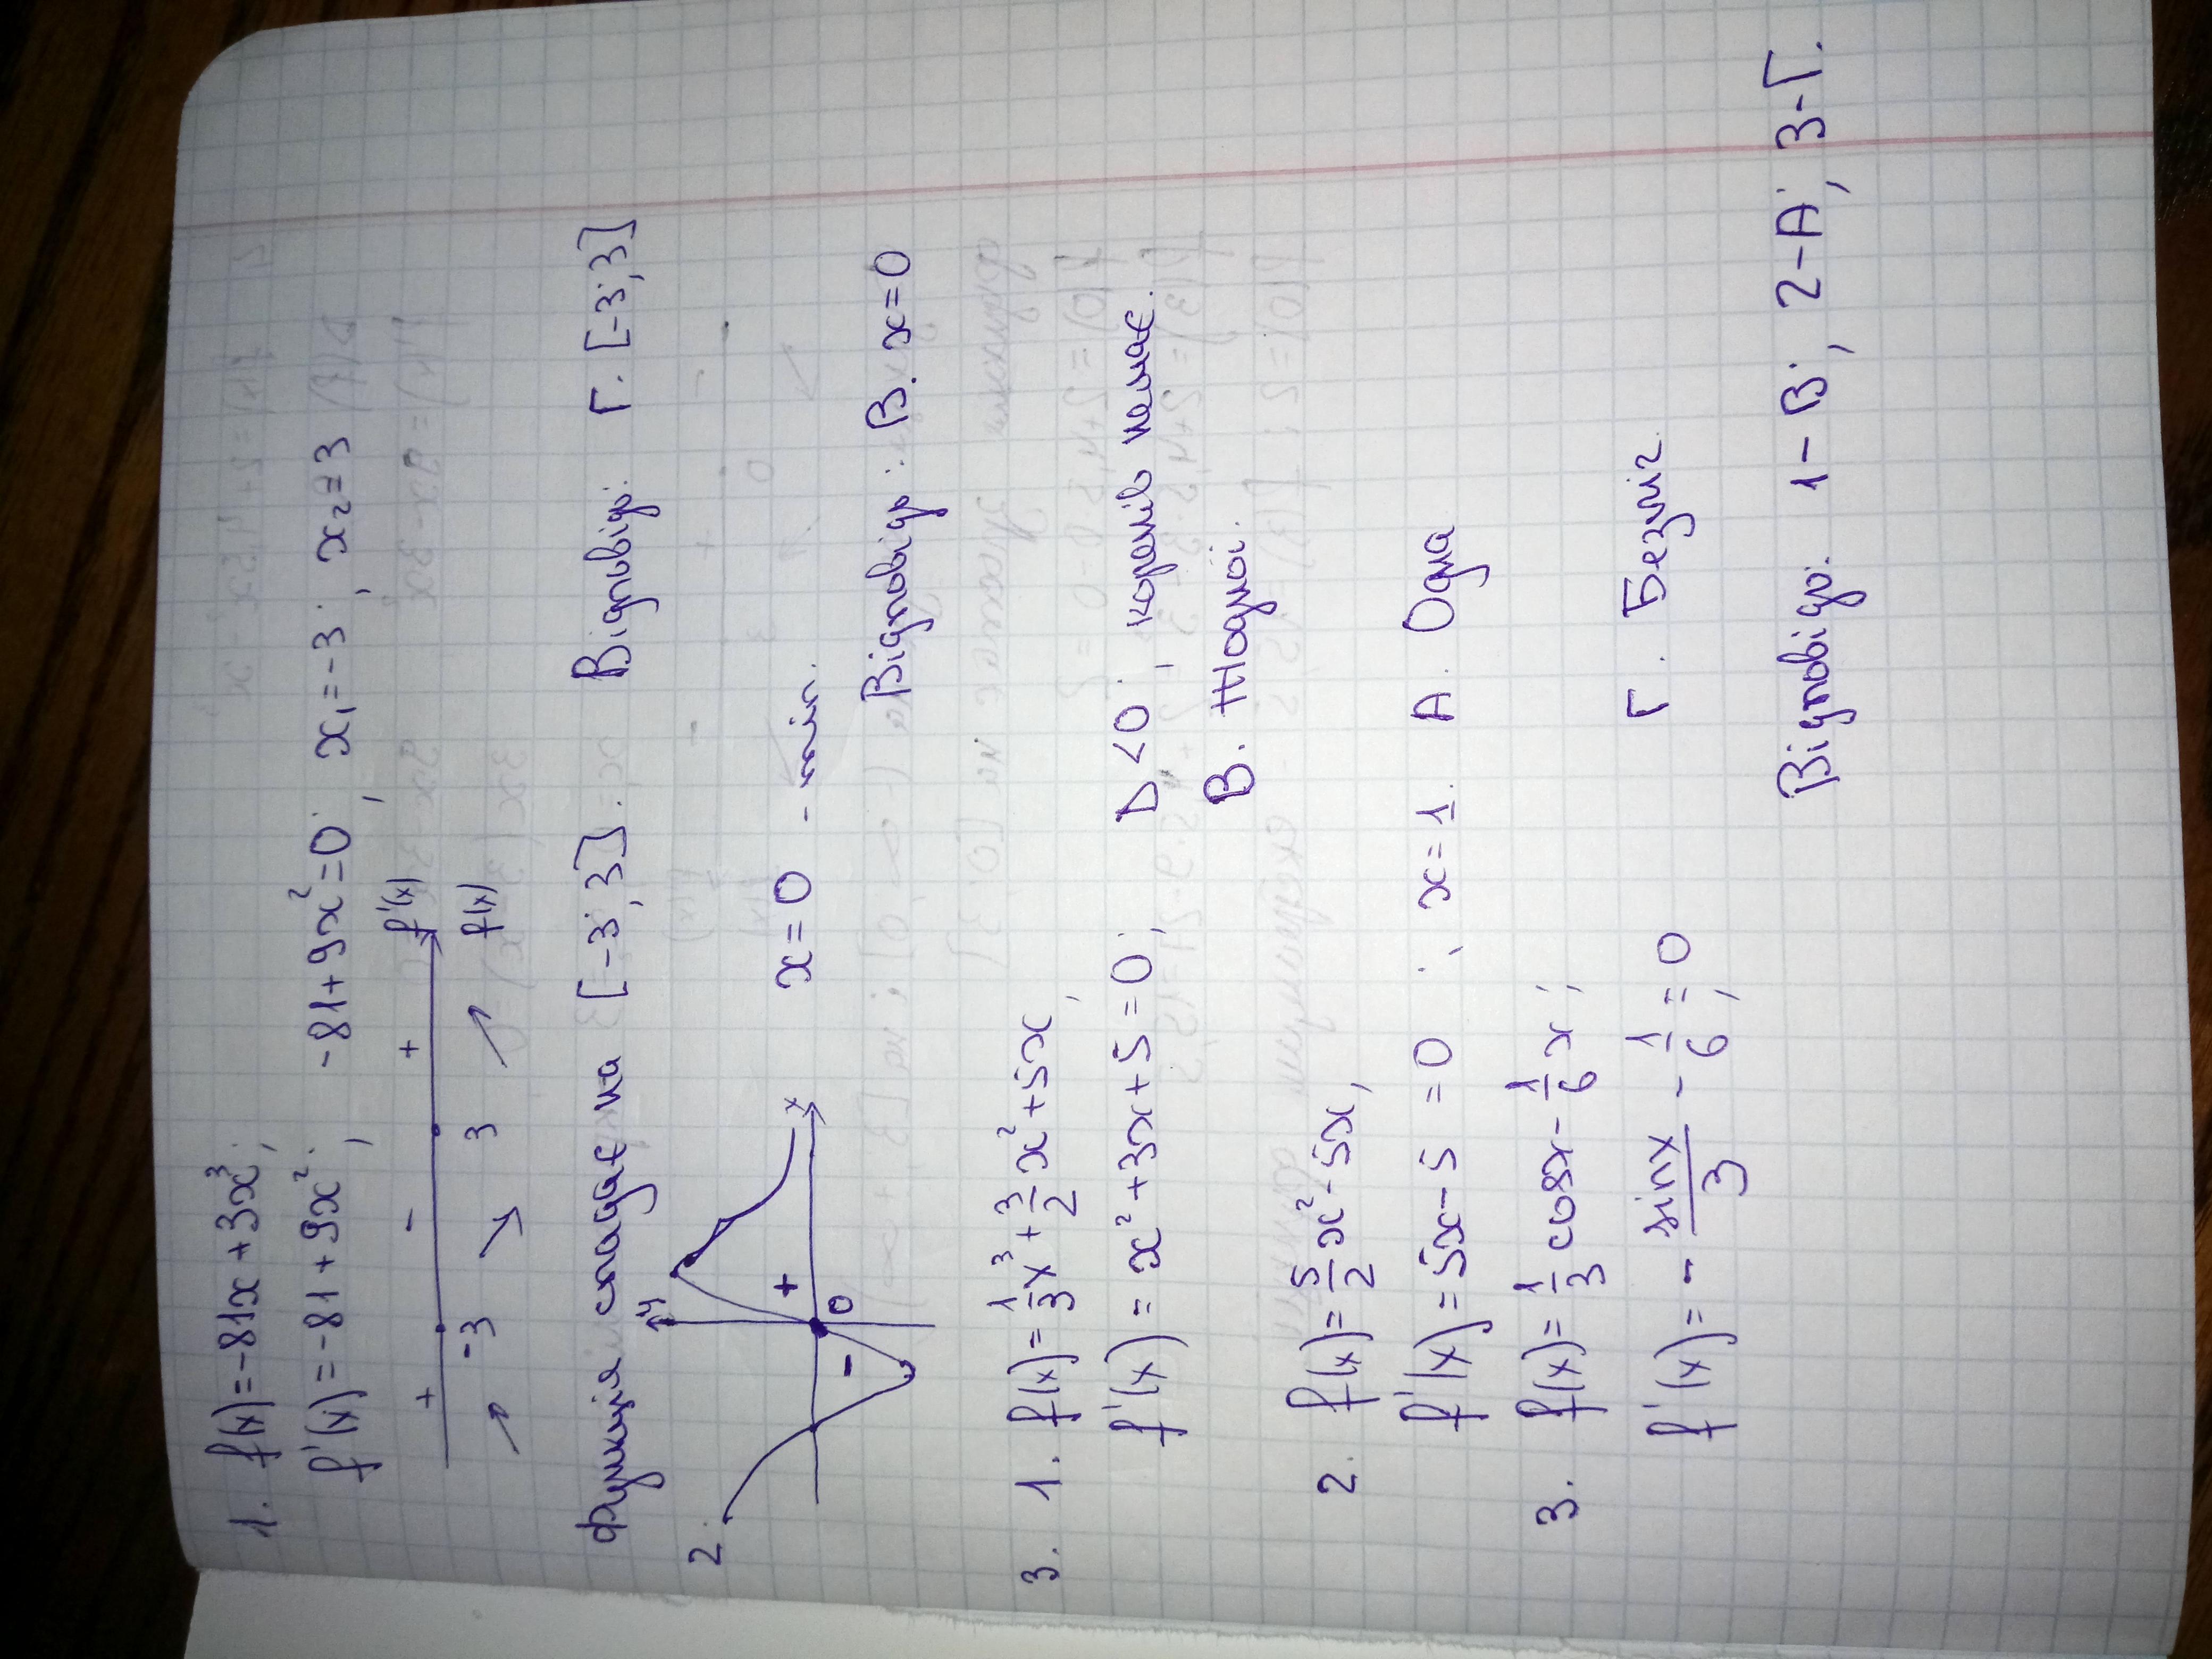 1. f(x)=-81x+3x³;
f'(x)=-81+9x²; -81+9x²=0; x₁=-3; x₂=3
+ - + f'(x)
-3 3 f(x)
Функція спадає на [-3;3]. Відповідь: Г. [-3;3]
2. y x 0 + - x=0 - min.
Відповідь: В. x=0
3. 1. f(x)=1/3x³+3/2x²+5x;
f'(x)=x²+3x+5=0; D<0; коренів немає.
В. Жодної.
2. f(x)=5/2x²-5x;
f'(x)=5x-5=0; x=1. А. Одна
3. f(x)=1/3cosx-1/6x;
f'(x)=-sinx/3-1/6=0; Г. Безліч.
Відповідь: 1-В; 2-А; 3-Г.